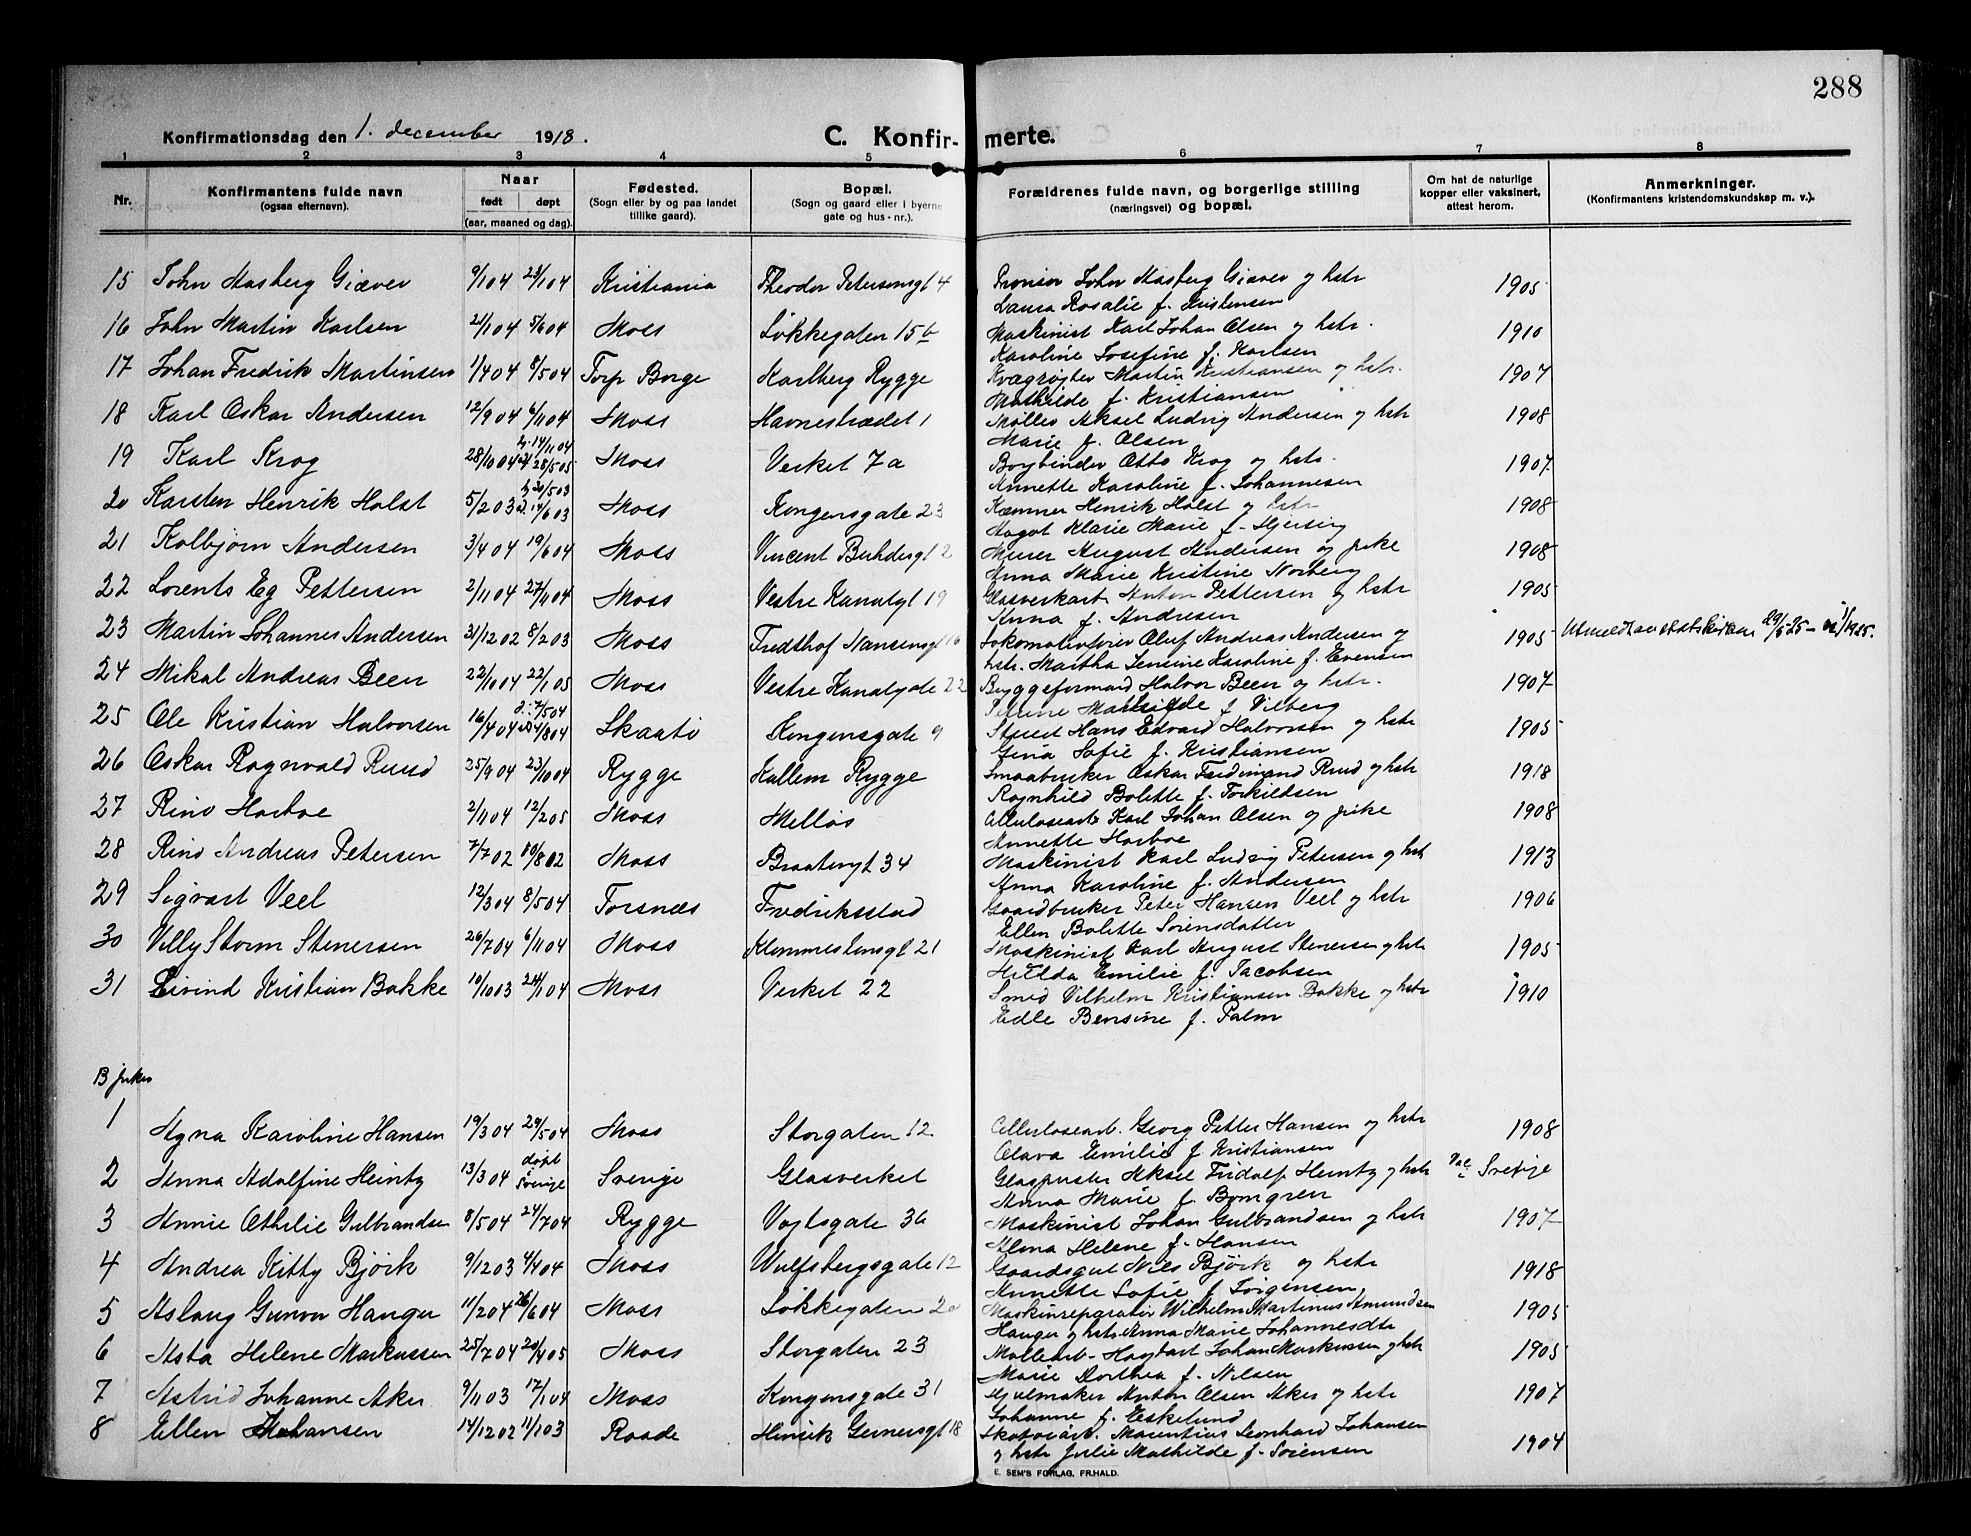 288
Konfirmationsdag den 1. december 1918.
C. Konfirmerte.
1 2 3 4 5 6 7 8
Nr. Konfirmantens fulde navn (ogsaa efternavn). Naar født døpt (aar, maaned og dag). Fødested. (Sogn eller by og paa landet tillike gaard). Bopæl. (Sogn og gaard eller i byerne gate og hus-nr.). Forældrenes fulde navn, og borgerlige stilling (næringsvei) og bopæl. Om hat de naturlige kopper eller vaksinert, attest herom. Anmerkninger. (Konfirmantens kristendomskundskap m. v.).
15 John Aasberg Giæver 9/1 04 23/1 04 Kristiania Theodor Petersensgt 4 Provisor John Aasberg Giæver og hstr 1905
Laura Rosalie f. Kristensen
16 John Martin Karlsen 21/1 04 5/6 04 Moss Løkkegaten 15b Maskinist Karl Johan Olsen og hstr. 1910
Karoline Josefine f. Karlsen
17 Johan Fredrik Martinsen 1/4 04 8/5 04 Torp Borge Karlberg Rygge Kvægrøgter Martin Kristiansen og hstr. 1907
Mathilde f. Kristiansen
18 Karl Oskar Andersen 12/9 04 6/11 04 Moss Havnestrædet 1 Møller Aksel Ludvig Andersen og hstr 1908
Marie f. Olsen
19 Karl Krog 28/10 04 28/5 05 Moss Verket 7a Bogbinder Otto Krog og hstr. 1907
Annette Karoline f. Johannesen
20 Karsten Henrik Holst 5/2 03 14/6 03 Moss Kongensgate 23 Kæmner Henrik Holst og hstr 1908
Klarie Marie f.
21 Kolbjørn Andersen 3/4 04 19/6 04 Moss Vincent Buddesgt 2 Murer August Andersen og pike 1908
Anna Marie Kristine Norberg
22 Lorents Eg Pettersen 2/11 04 27/11 04 Moss Vestre Kanalgt 19 Glasverkarb Anton Pettersen og hstr 1905
Anna f. Andresen
23 Martin Johannes Andersen 31/12 02 8/2 03 Moss Fredthof Nansensgt 16 Lokomotivfører Oluf Andreas Andersen og 1905 Utmeldt av statskirken 29/5-25
hstr. Martha Jensine Karoline f. Evensen
24 Mikal Andreas Been 22/10 04 22/1 05 Moss Vestre Kanalgate 22 Bryggeformand Halvor Been og hstr. 1907
Petrine Mathilde f. Vilberg
25 Ole Kristian Halvorsen 16/4 04 4/8 04 Skaatø Kongensgate 9 Stuert Hans Edvard Halvorsen og hstr 1905
Gina Sofie f. Kristiansen
26 Oskar Ragnvald Ruud 25/9 04 23/10 04 Rygge Kallem Rygge Smaabruker Oskar Ferdinand Ruud og hstr 1918
Ragnhild Bolette f. Torkildsen
27 Rino Harboe 2/11 04 12/2 05 Moss Melløs Cellulosearb Karl Johan Olsen og pike 1908
Annette Harboe
28 Rino Andreas Petersen 7/7 02 10/8 02 Moss Braatengt 34 Maskinist Karl Ludvig Petersen og hstr 1913
Anna Karoline f. Andersen
29 Sigvart Veel 12/3 04 8/5 04 Torsnæs Fredriksstad Gaardbruker Peter Hansen Veel og hstr 1906
Ellen Bolette Sørensdatter
30 Villy Storm Stenersen 26/7 04 6/11 04 Moss Klommestensgt 21 Maskinist Karl August Stenersen og hstr 1905
Hilda Emilie f. Jacobsen
31 Eivind Kristian Bakke 10/10 03 24/1 04 Moss Verket 22 Smed Vilhelm Kristiansen Bakke og hstr 1910
Edle Bensine f. Palm
B piker
1 Agna Karoline Hansen 19/3 04 29/5 04 Moss Storgaten 12 Cellulosearb. Georg Petter Hansen og hstr 1908
Olava Emilie f Kristiansen
2 Anna Adolfine Heintz 13/3 04 døpt Sverige Sverige Glasverket Glaspuster Aksel Fridolf Heintz og hstr Vac i Sverige
Anna Marie f. Bomgren
3 Annie Othilie Gulbrandsen 8/5 04 24/7 04 Rygge Vogtsgate 36 Maskinist Johan Gulbrandsen og hstr 1907
Alma Helene f. Hansen
4 Andrea Kitty Bjørk 9/12 03 4/4 04 Moss Wulfsbergsgate 12 Gaardsgut Nils Bjørk og hstr 1918
Annette Sofie f Jørgensen
5 Aslaug Gunvor Hanger 11/2 04 26/6 04 Moss Løkkegaten 20 Maskinreparatør Wilhelm Martinus Amundsen 1905
Hanger og hstr Anna Marie Johannesdtr
6 Asta Helene Markussen 25/7 04 20/4 05 Moss Storgaten 23 Møllearb. Hagbart Johan Markussen og hstr 1905
Marie Dorthea f. Nilsen
7 Astrid Johanne Aker 9/11 03 17/1 04 Moss Kongensgate 31 Hjulmaker Anton Olsen Aker og hstr 1907
Johanne f. Eskelund
8 Ellen Johansen 14/12 02 11/1 03 Raade Henrik Gernersgt 18 Skotøiarb. Laurentius Leonhard Johansen 1904
og hstr Julie Mathilde f. Sørensen
E. SEM'S FORLAG, FR.HALD.